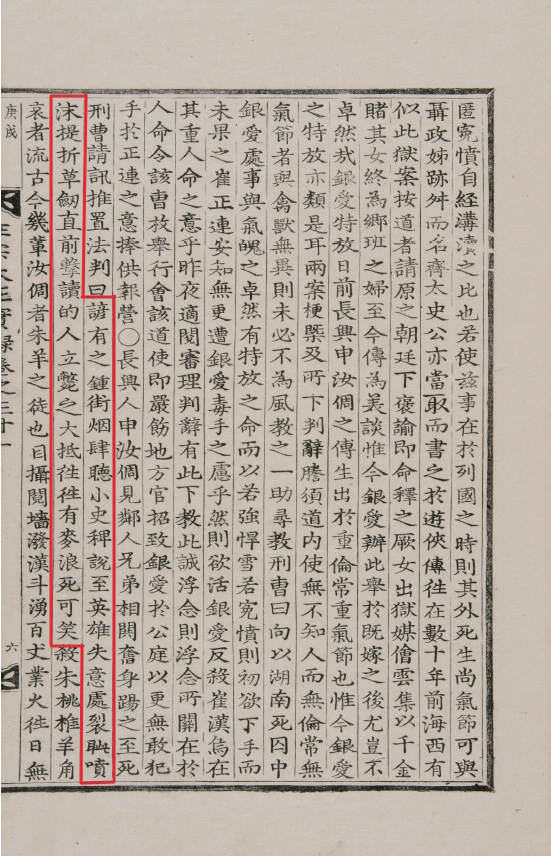 匿寃憤自經溝瀆之比也若使玆事在於列國之時則其外死生尚氣節可與
聶政姊跡舛而名齊太史公亦當取而書之於遊俠傳徃在數十年前海西有
似此獄案按道者請原之朝廷下褒諭即命釋之厥女出獄媒儈雲集以千金
賭其女終為鄉班之婦至今傳為美談惟今銀愛辦此舉於既嫁之後尤豈不
卓然㢤銀愛特放日前長興申汝倜之傳生出於重倫常重氣節也惟今銀愛
之特放亦類是耳兩案梗槩及所下判辭謄須道內使無不知人而無倫常無
氣節者與禽獸無異則未必不為風教之一助尋教刑曹曰向以湖南死囚中
銀愛處事與氣魄之卓然有特放之命而以若強悍雪若寃憤則初欲下手而
未果之崔正連安知無更遭銀愛毒手之慮乎然則欲活銀愛反殺崔漢烏在
其重人命之意乎昨夜適閱審理判辭有此下教此誠浮念則浮念所關在於
人命今該曹放舉行會該道使即嚴飭地方官招致銀愛於公庭以更無敢犯
手於正連之意捧供報營〇長興人申汝倜見鄰人兄弟相鬨奮身踢之至死
刑曹請訊推置法判曰諺有之鍾街烟肆聽小史稗說至英雄失意處裂眦噴
沫提折草劒直前擊讀的人立斃之大抵徃徃有麥浪死可笑殺朱桃椎羊角
哀者流古今幾輩汝倜者朱羊之徒也目攝鬩墻潑漢斗湧百丈業火徃日無
庚戌
正宗大王實錄卷之三十一
六